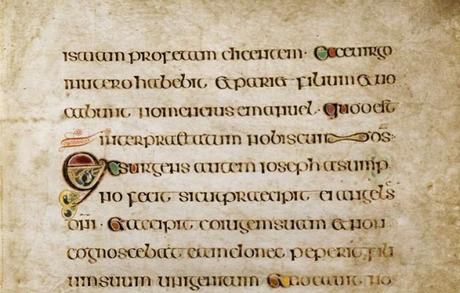 isaiam profetam dicentem · Ecce uirgo
in utero habebit & pari& filium & uo
cabunt nomen eius emanuel · quod est
interpraetatum nobiscum d̄s:
Exsurgens autem ioseph a somp
no fecit sicut praecipit ei angelus
dn̄i · & accipit coniugem suam & non
cognoscebat eam donec peperit fili
um suum unigenitum & uocauit no